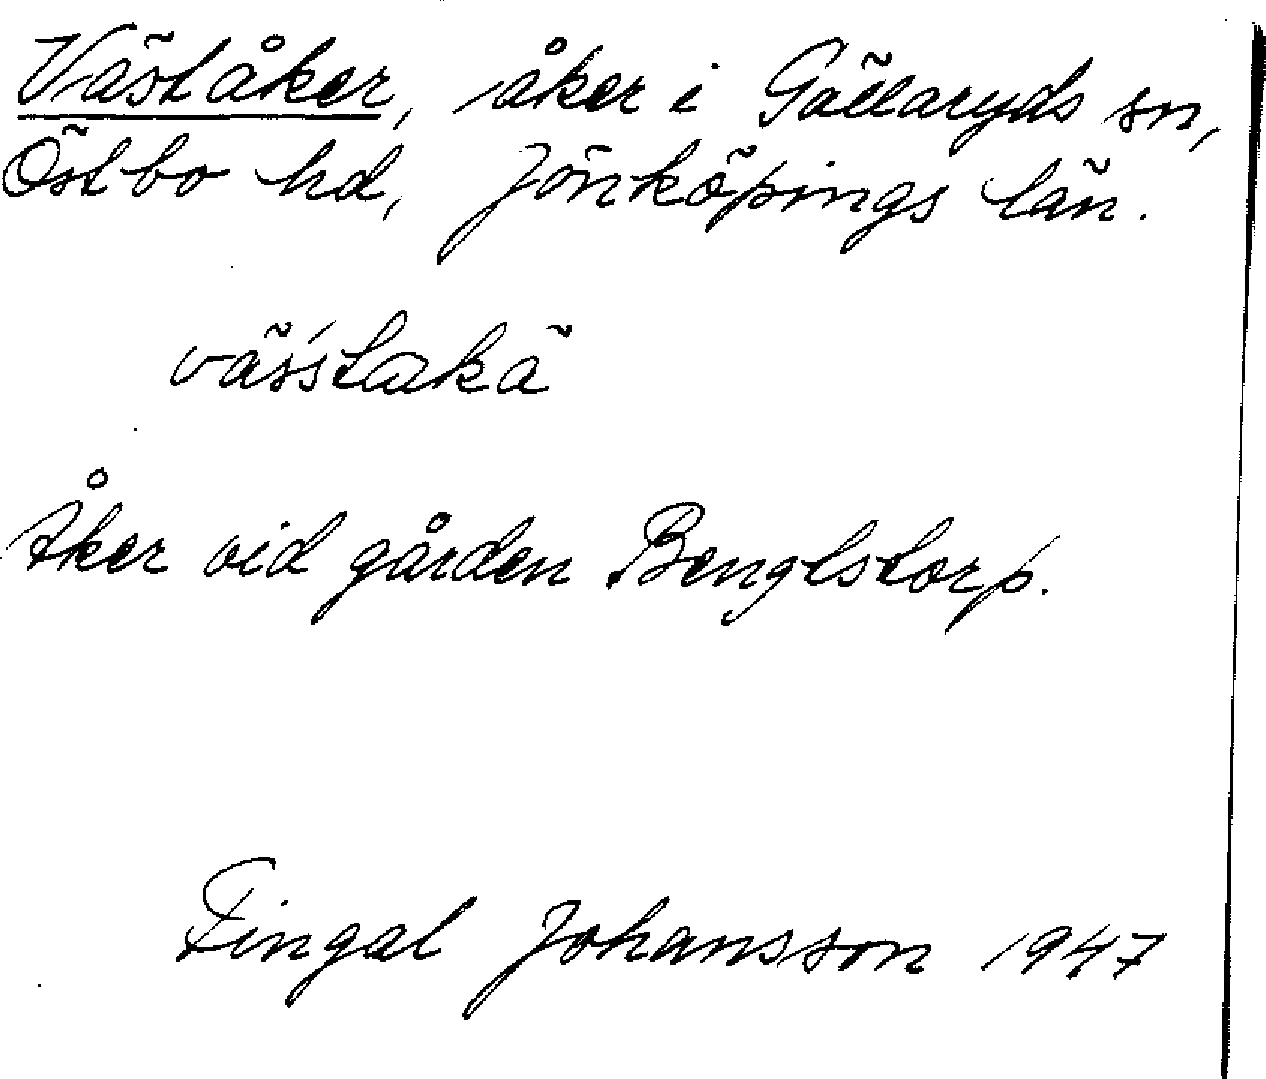 Väståker, åker i Gällaryds sn,
Östbo hd, Jönköpings län.
väs´stakä
Åker vid gården Bengtstorp.
Fingal Johansson 1947